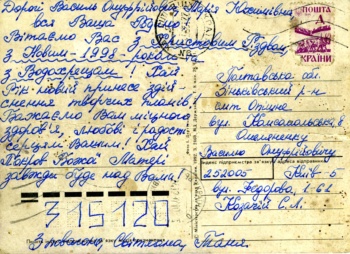 Дорогі Василь Онуфрійович, Марія Косинівна
вся Ваша Родино
Вітаємо Вас з Христовим Різдвом,
з Новим - 1998 - роком та
з Водохрещами! Хай
Рік новий принесе здій-
снення творчих планів!
Бажаємо Вам міцного
здоров'я, любові і радості
серцям Вашим! Хай
Покров Божої Матері
завжди буде над Вами!
З повагою, Світлана, Таня.
315120
ПОШТА
Д
УКРАЇНИ
Полтавська обл.
Зіньківський р-н
смт Опішне
вул. Комсомольська
Омеляненку
Василю Онуфрійовичу
Індекс підприємства зв'язку і адреса відправника
252005 Київ-5
вул. Федорова, 1-62
Козачій С. Л.